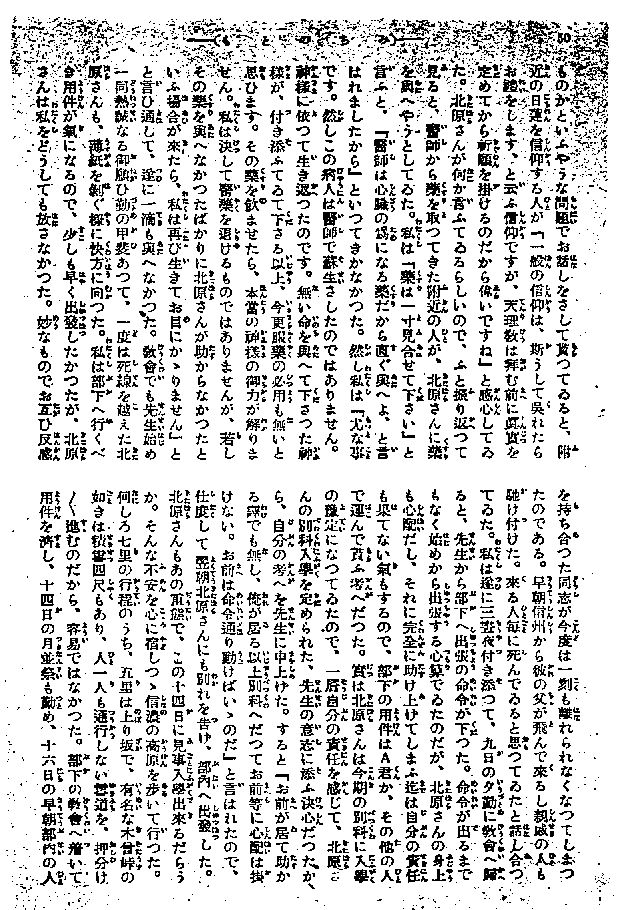 50
みちのとも
ものかといふやうな問題でお話しをさして貰つてゐると、附
近の日蓮を信仰する人が『一般の信仰は、斯うして呉れたら
お禮をします、と云ふ信仰ですが、天理敎は拜む前に眞實を
定めてから祈願を掛けるのだから偉いですね』と感心してゐ
た。北原さんが何か言ふてゐるらしいので、ふと振り返つて
見ると、醫師から藥を取つてきた附近の人が、北原さんに藥
を與へやうとしてゐた。私は『藥は一寸見合せて下さい』と
言ふと、『醫師は心臟の爲になる藥だから直ぐ與へよ、と言
はれましたから』といつてきかなかつた。然し私は『尤な事
です。然しこの病人は醫師で蘇生さしたのではありません。
神樣に依つて生き返つたのです。無い命を與へて下さつた神
樣が、付き添ふてゐて下さる以上、今更服藥の必用も無いと
思ひます。その藥を飮ませたら、本當の神樣の御力が解りま
せん。私は決して醫藥を退けるものではありませんが、若し
その藥を與へなかつたばかりに北原さんが助からなかつたと
いふ場合が來たら、私は再び生きてお目にかゝりません』と
と言ひ通して、遂に一滴も與へなかつた。敎會でも先生始め
一同熱誠なる御願ひ勤の甲斐あつて、一度は死線を越えた北
原さんも、薄紙を剝ぐ樣に快方に向つた。私は部下へ行くべ
き用件が氣になるので、少しも早く出發したかつたが、北原
さんは私をどうしても放さなかつた。妙なものでお互ひ反感
を持ち合つた同志が今度は一刻も離れられなくなつてしまつ
たのである。早朝信州から彼の父が飛んで來るし親戚の人も
馳け付けた。來る人每に死んでゐると思つてゐたと話し合つ
てゐた。私は遂に三晝夜付き添つて、九日の夕勤に敎會へ歸
ると、先生から部下へ出張の命令が下つた。命令が出るまで
もなく始めから出張する心算でゐたのだが、北原さんの身上
も心配だし、それに完全に助け上げてしまふ迄は自分の責任
も果てない氣もするので、部下の用件はA君か、その他の人
で運んで貰ふ考へだつた。實は北原さんは今期の別科に入學
の豫定になつてゐたので、一層自分の責任を感じて、北原さ
んの別科入學を定められた、先生の意志に添ふ決心だつたか
ら、自分の考へを先生に申上げた。すると『お前が居て助か
る譯でも無し、俺が居る以上別科へだつてお前等に心配は掛
けない。お前は命令通り動けばいゝのだ』と言はれたので、
仕度して翌朝北原さんにも別れを吿げ、部內へ出發した。
北原さんもあの重態で、この十四日に見事入學出來るだらう
か。そんな不安を心に宿しつゝ信濃の高原を步いて行つた。
何しろ七里の行程のうち、五里は上り坂で、有名な木曾峠の
如きは積雪四尺もあり、人一人も通行しない雪道を、押分け
〳〵進むのだから、容易ではなかつた。部下の敎會へ着いて
用件を濟し、十四日の月並祭も勤め、十六日の早朝部內の人